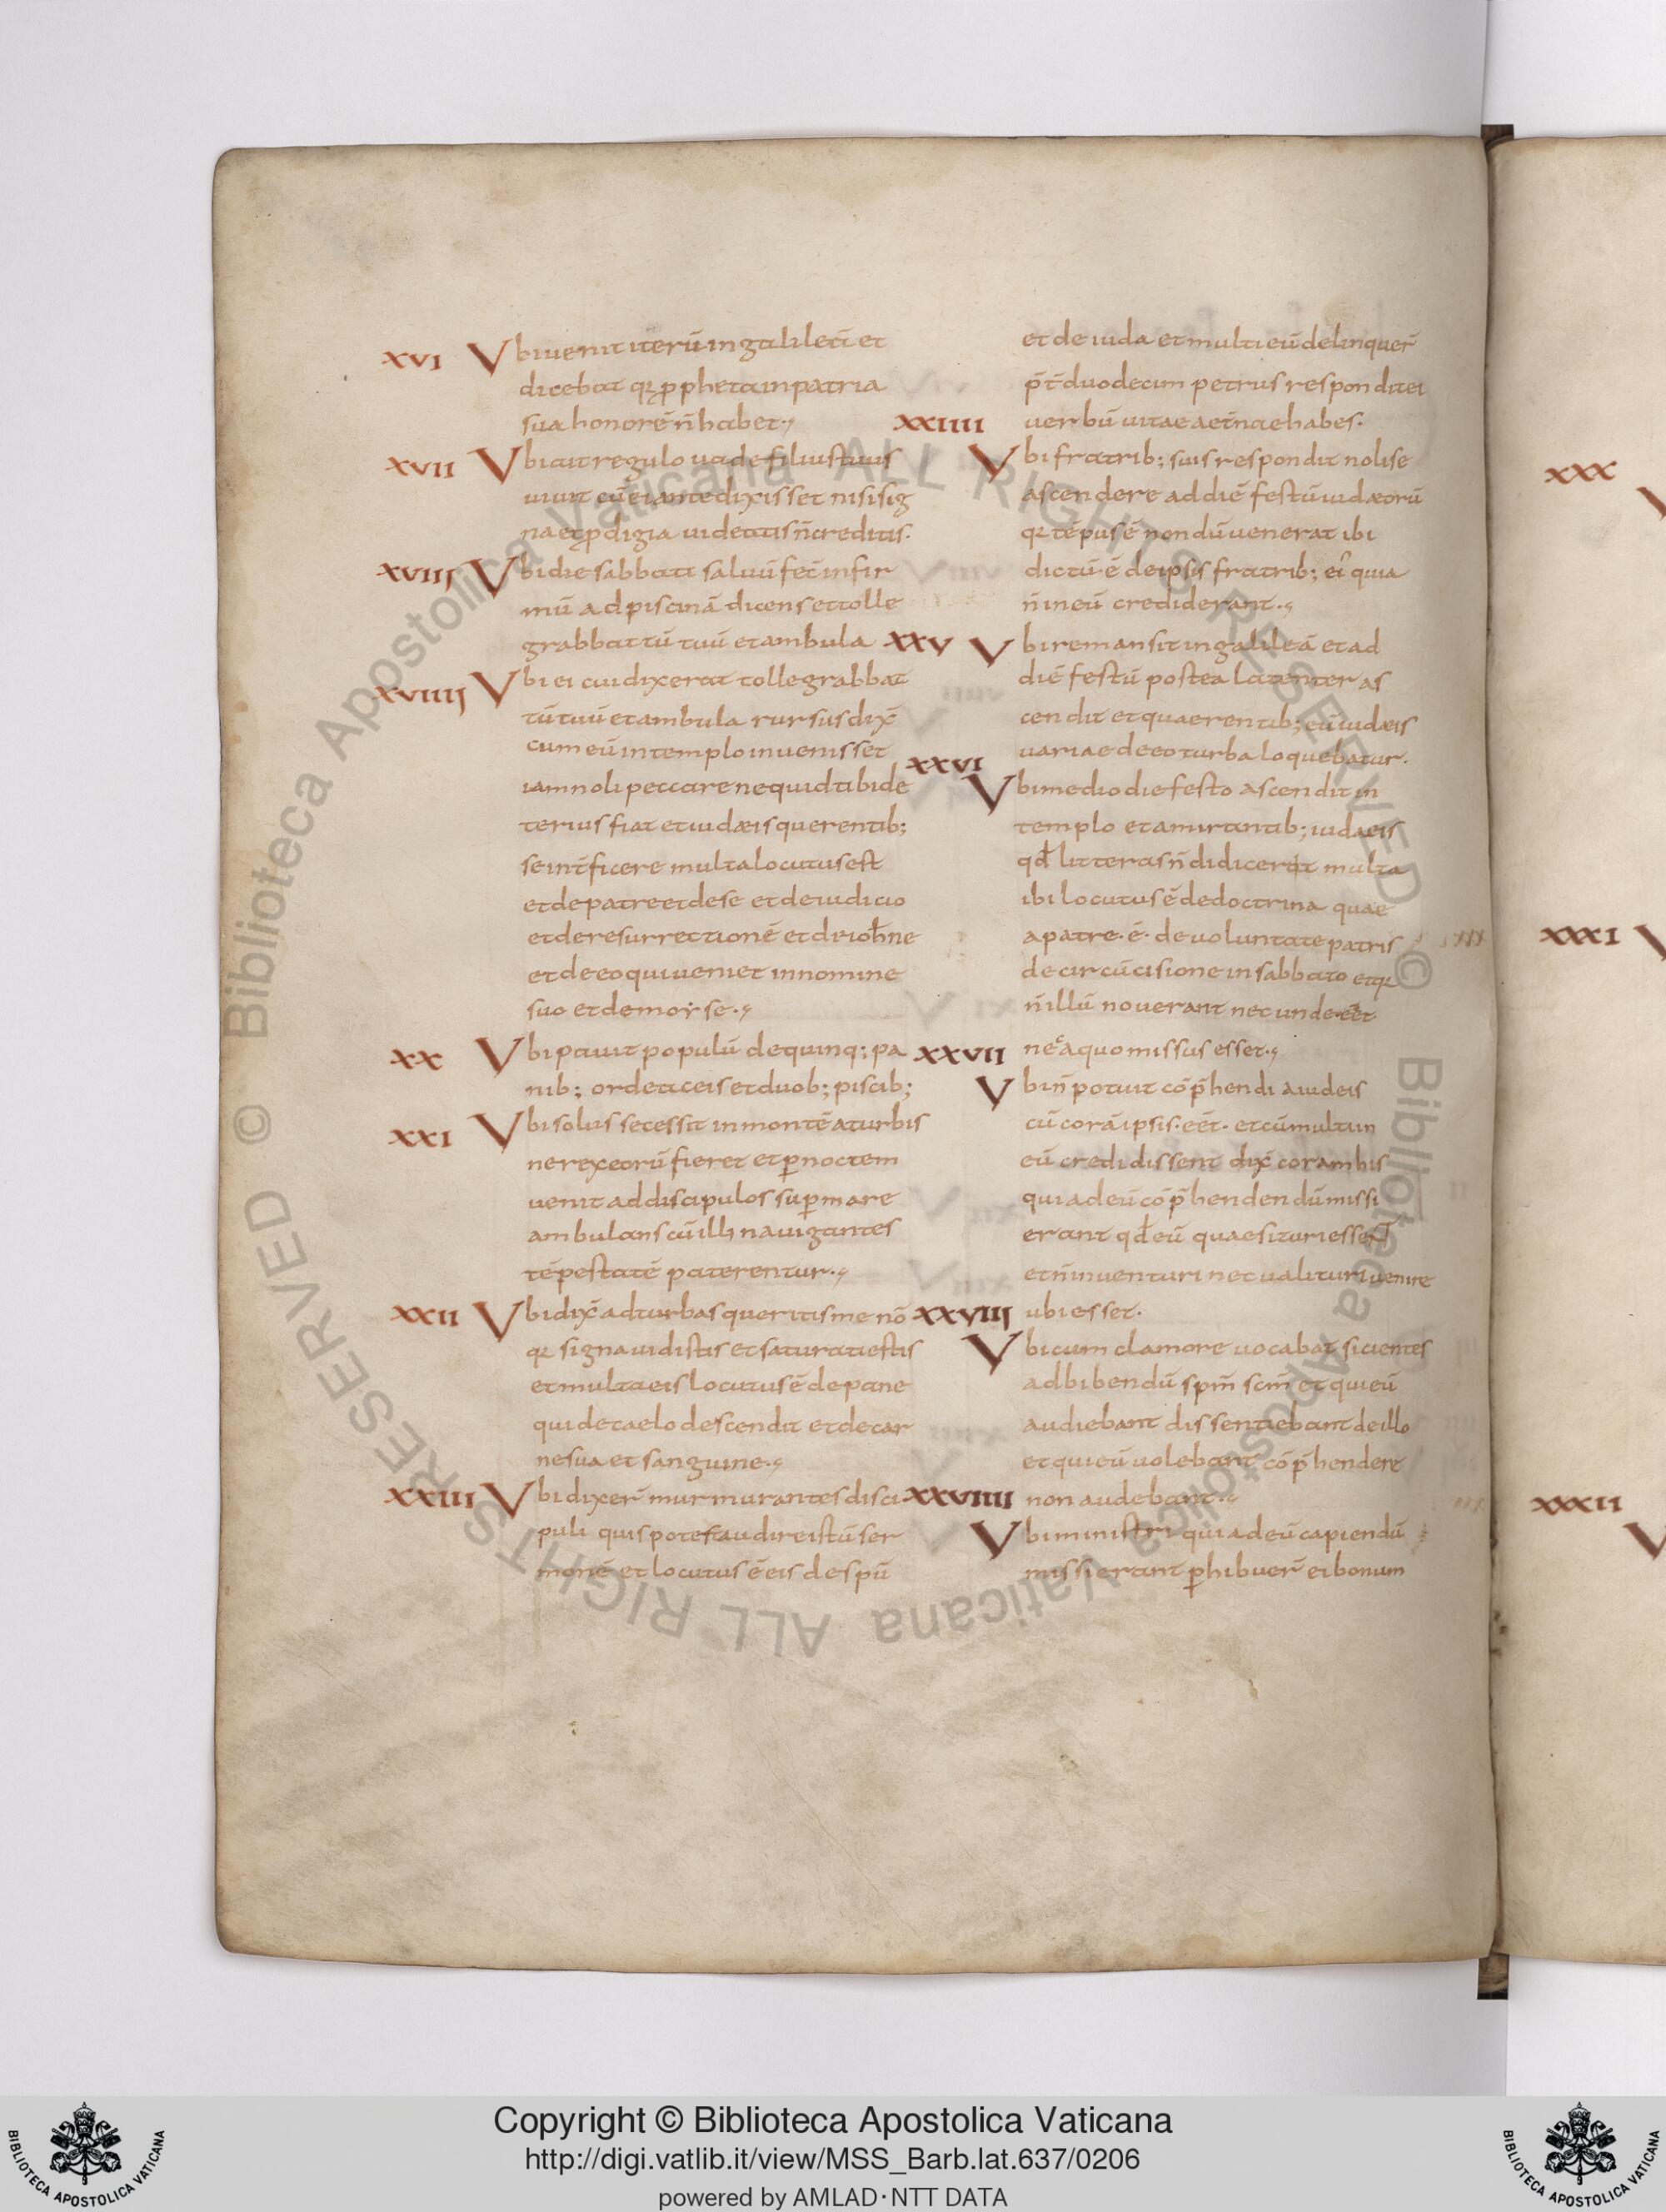 XVI Vbi uenit iterū in galileā et
dicebat qr ꝓpheta in patria
sua honorē n̄ habet·
XVII Vbi ait regulo uade filius tuus
uiuit cū ei ante dixisset nisi sig
na et ꝓdigia uideatis n̄ creditis·
XVIII Vbi die sabbati saluū fec̄ infir
mū ad piscinā dicens ei tolle
grabbattū tuū et ambula
XVIIII Vbi ei cui dixerat tolle grabbat
tū tuū et ambula rursus dix̄
cum eū in templo inuenisset
iam noli peccare ne quid tibi de
terius fiat et iudæis querentib;
se int̄ficere multa locutus est
et de patre et de se et de iudicio
et de resurrectionē et de ioh̄ne
et de eo qui ueniet in nomine
suo et de moyse·
XX Vbi pauit populū de quinq; pa
nib; ordeaceis et duob; piscib;
XXI Vbi solus secessit in montē a turbis
ne rex eorū fieret et ꝑ noctem
uenit ad discipulos suꝑ mare
ambulans cū illi nauigantes
tēpestatē paterentur·
XXII Vbi dix̄ ad turbas queritis me nō
qr signa uidistis et saturati estis
et multa eis locutus ē de pane
qui de caelo descendit et de car
ne sua et sanguine·
XXIII Vbi dixer̄ murmurantes disci
puli quis potest audire istū ser
monē et locutus ē eis de spū
et de iuda et multi eū delinquer̄
p̄t̄ duodecim petrus respondit ei
uerbū uitae aet̄nae habes·
XXIIII Vbi fratrib; suis respondit nolise
ascendere ad diē festū iudæorū
qr tēpus ē nondū uenerat ibi
dictū·ē de ipsis fratrib; ei' quia
n̄ in eū crediderant·
XXV Vbi remansit in galileā et ad
diē festū postea latenter as
cendit et quaerentib; eū iudæis
uariae de eo turba loquebatur·
XXVI Vbi medio die festo ascendit in
templo et amirantib; iudaeis
qd̄ litteras n̄ didicerat multa
ibi locutus ē de doctrina quae
a patre·ē· de uoluntate patris
de circūcisione in sabbato et qr
n̄ illū nouerant nec unde eēt
nec a quo missus esset·
XXVII Vbi n̄ potuit cōp̄hendi a iudeis
cū corā ipsis·eēt· et cū multi in
eū credidissent dix̄ coram his
qui ad eū cōp̄hendendū missi
erant qd̄ eū quaesituri essent
et n̄ inuenturi nec ualituri uenire
ubi esset·
XXVIII Vbi cum clamore uocabat sicientes
ad bibendū spm̄ scm̄ et qui eū
audiebant dissentiebant de illo
et qui eū uolebant cōp̄hendere
non audebant·
XXVIIII Vbi ministri qui ad eū capiendū
missi erant ꝑhibuer̄ ei bonum
XXX
V
XXXI
V
XXXII
V
© Biblioteca Apostolica Vaticana ALL RIGHTS RESERVED © Biblioteca Apostolica Vaticana ALL RIGHTS RESERVED
Copyright © Biblioteca Apostolica Vaticana
http://digi.vatlib.it/view/MSS_Barb.lat.637/0206
powered by AMLAD·NTT DATA
BIBLIOTECA APOSTOLICA VATICANA
BIBLIOTECA APOSTOLICA VATICANA